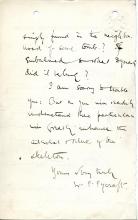 simply found in the neighbor-
hood of some tomb? If
embalmed to what Dynasty
did it belong?
I am sorry to trouble
you: But as you will readily
understand these particulars
will greatly enhance the
interest & value of the
skeleton.
Yours very truly
W. P. Pycraft